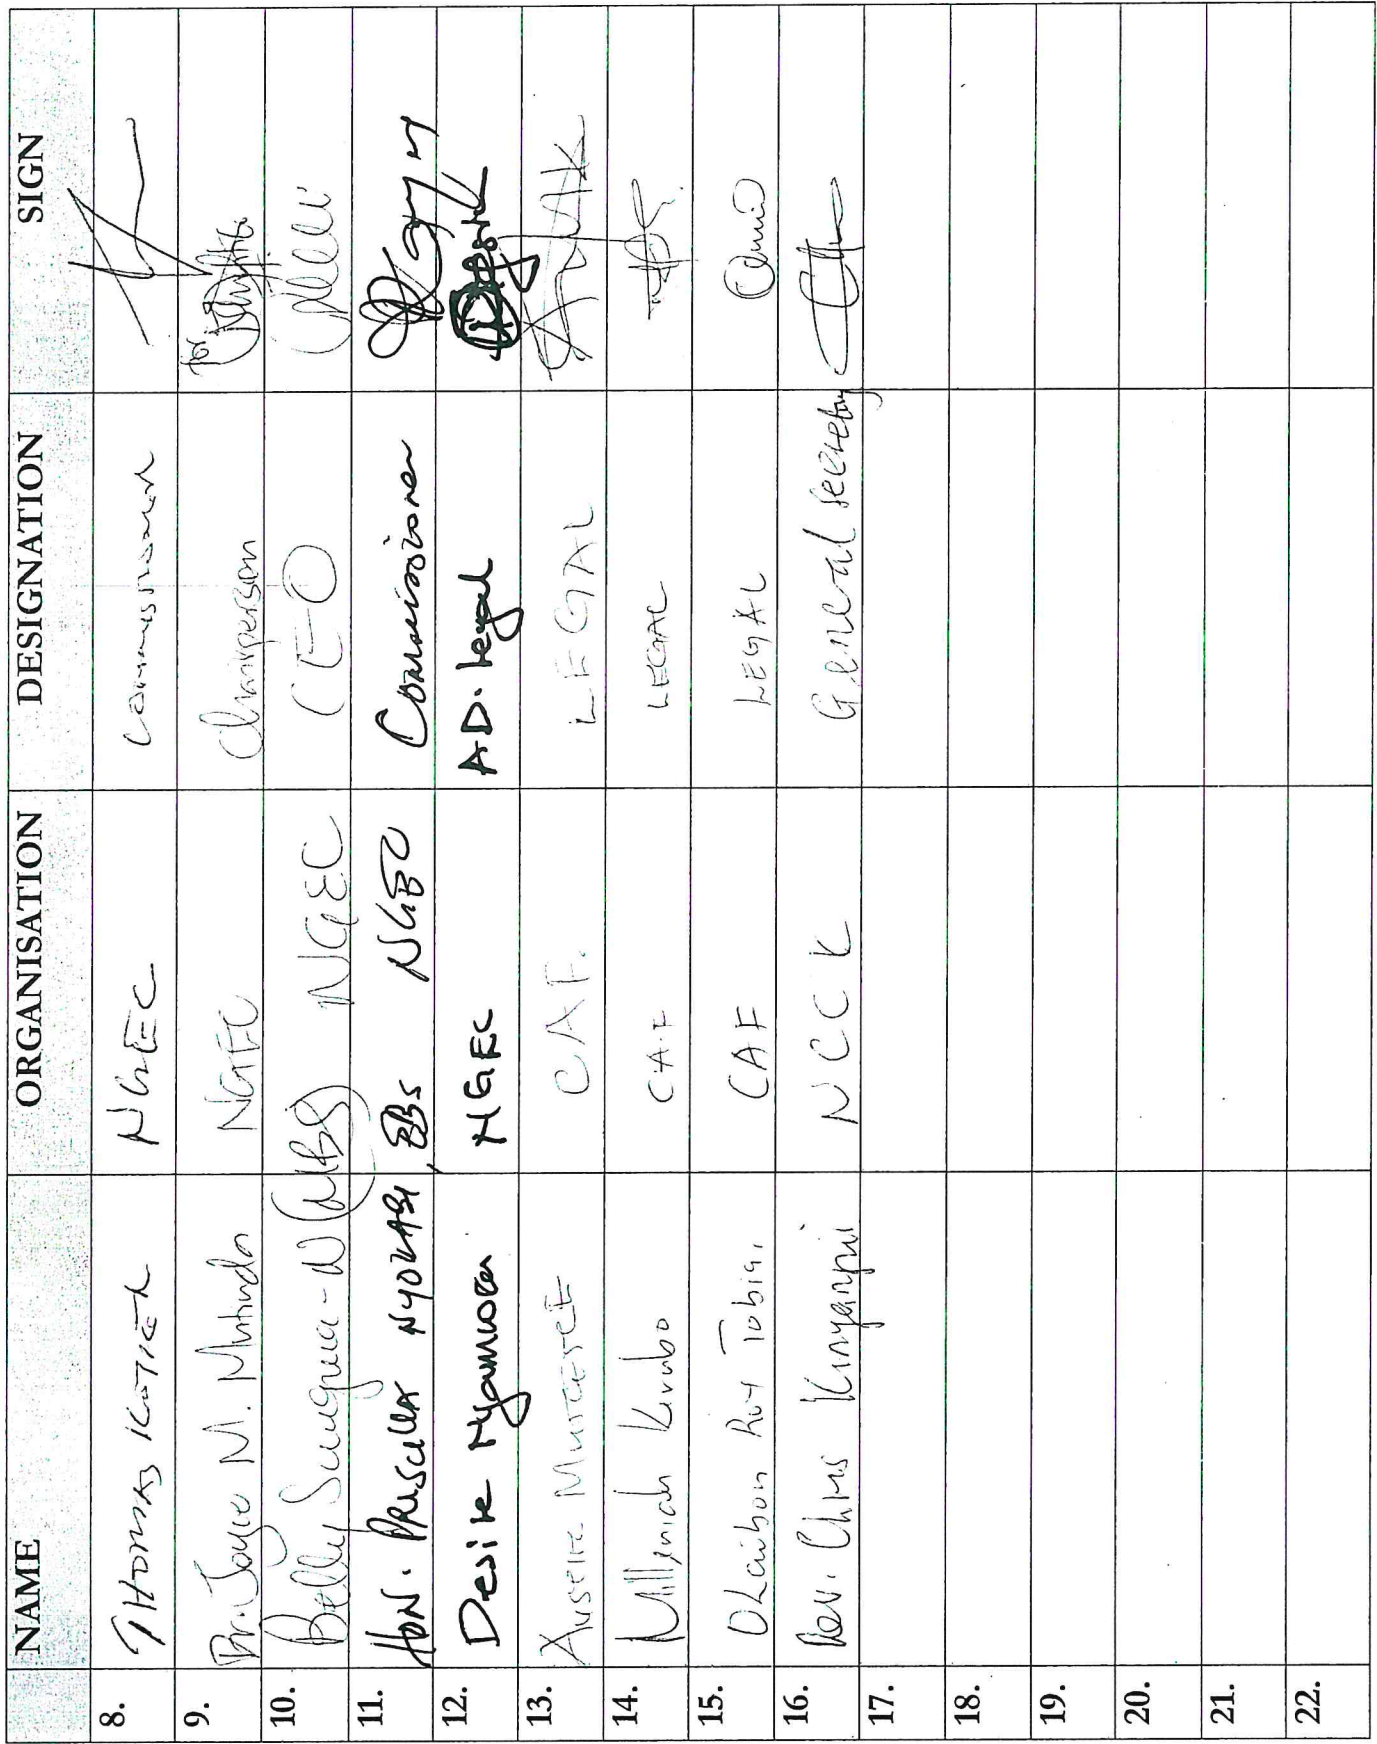 NAME ORGANISATION DESIGNATION SIGN
8. THOMAS KOTIER NGEC Commissioner
9. Dr. Joyce M. Mutinda NGEC Chairperson for
10. Betty Sungura-N (MBS) NGEC CEO
11. HON. PRISCILLA NYOKABI, EBS NGEC Commissioner
12. NGEC AD. Legal
13. CAF. LEGAL
14. Millicah Kirubo CAF LEGAL
15. Olaibon Roy Tobiai CAF LEGAL
16. Rev. Chris Kinyanjui NCCK General Secretary
17.
18.
19.
20.
21.
22.